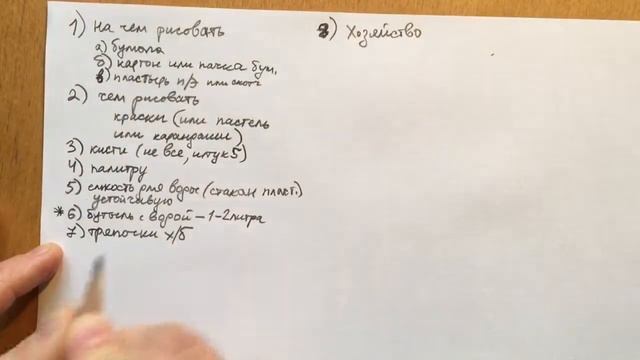 1) на чем рисовать
а) бумага
б) картон или пачка бум.
в) пластырь п/э или скотч
2) чем рисовать
краски (или пастель
или карандаши)
3) кисти (не все, штук 5)
4) палитру
5) емкость для воды (стакан пласт.)
устойчивую
* 6) бутыль с водой – 1-2 литра
7) тряпочки х/б
8) Хозяйство